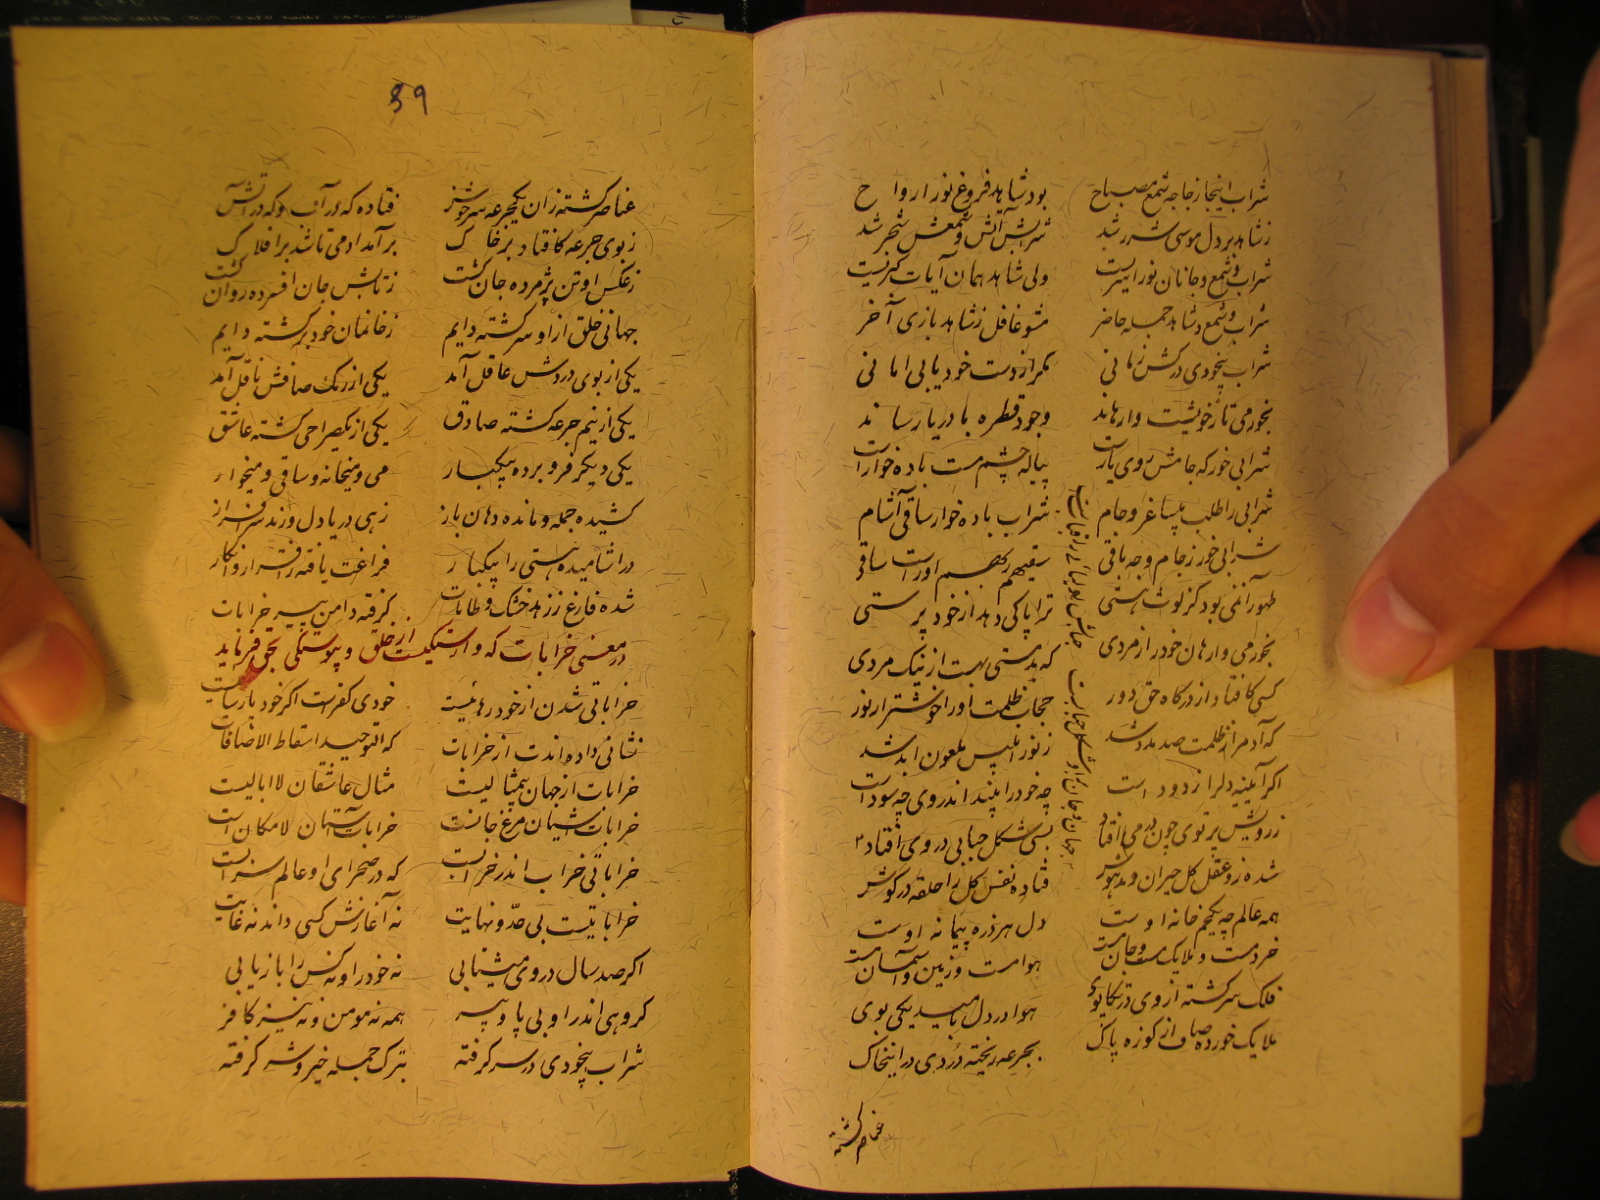 شراب اینجا زجاجه شمع مصباح بود شاهد فروغ نور ارواح
زشاهد بر دل موسی شرر شد شرابش آتش و شمعش شجر شد
شراب و شمع و جانان نور اسریست ولی شاهد همان آیات کبریست
شراب و شمع و شاهد جمله حاضر مشو غافل زشاهد بازی آخر
شراب بیخودی درکش زمانی مکر از دست خود یابی امانی
بخور می تا زخویشت وارهاند وجود قطره با دریا رساند
شرابی خور که جامش روی یارست پیاله چشم مست باده خوارست
شرابی را طلب بی ساغر و جام شراب باده خوار ساقی آشام
شرابی خور زجام وجه باقی سقیهم ربهم اوراست ساقی
طهور آن می بود کز لوث هستی ترا پاکی دهد از خود پرستی
بخور می وارهان خود را زمردی که بدمستی بهست از نیک مردی
کسی کافتاد از درکاه حق دور حجاب ظلمت او را خوشتر از نور
که آدم را زظلمت صد مدد شد زنور ابلیس ملعون ابد شد
اگر آیینه دلرا زدود است چه خود را بیند اندر وی چه سود است
زرویش پرتوی چون در می افتاد بسی شکل حبابی در وی افتاد
جهان و جان بر او شکل حبابست حبابش اولیائی را قبابست
شده زو عقل کل حیران و مدهوش فتاده نفس کل را حلقه در کوش
همه عالم چه یک خمخانه اوست دل هر ذره پیمانه اوست
خرد مست و ملایک مست و جان مست هوا مست و زمین و آسمان مست
فلک سرکشته از وی در تکاپوی هوا در دل بامید یکی بوی
ملایک خورده صاف از کوزه پاک بجرعه ریخته دردی در این خاک
عناصر کشته
39
عناصر کشته زان یکجرعه سرخوش فتاده که در آب و که در آتش
زبوی جرعه کافتاد بر خاک برآمد آدمی تا شد بر افلاک
زعکس او تن پژمرده جان کشت زتابش جان افسرده روان کشت
جهانی خلق از او سرکشته دایم زخانمان خود برکشته دایم
یکی از بوی دردش عاقل آمد یکی از رنک صافش ناقل آمد
یکی از نیم جرعه کشته صادق یکی از یکصراحی کشته عاشق
یکی دیکر فرو برده بیکبار می و میخانه و ساقی و میخوار
کشیده جمله و مانده دهان باز زهی دریا دل و رند سرافراز
در آشامیده هستی را بیکبار فراغت یافته زاقرار و انکار
شده فارغ ززهد خشک و طامات کرفته دامن پیر خرابات
در معنی خرابات که وارستکیست از خلق و پیوستکی بحق فرماید
خراباتی شدن از خود رهائیست خودی کفرست اکر خود پارسائیست
نشانی داده اندت از خرابات که التوحید اسقاط الاضافات
خرابات از جهان بی مثالیست مثال عاشقان لاابالیست
خرابات آشیان مرغ جانست خرابات آستان لامکان است
خراباتی خراب اندر خرابست که در صحرای او عالم سرابست
خراباتیست بی حدّ و نهایت نه آغازش کسی داند نه غایت
اکر صد سال در وی میشتابی نه خود را و نه کس را بازیابی
کروهی اندر او بی پا و بی سر همه نه مومن و نه نیز کافر
شراب بیخودی در سر کرفته بترک جمله خیر و شر کرفته